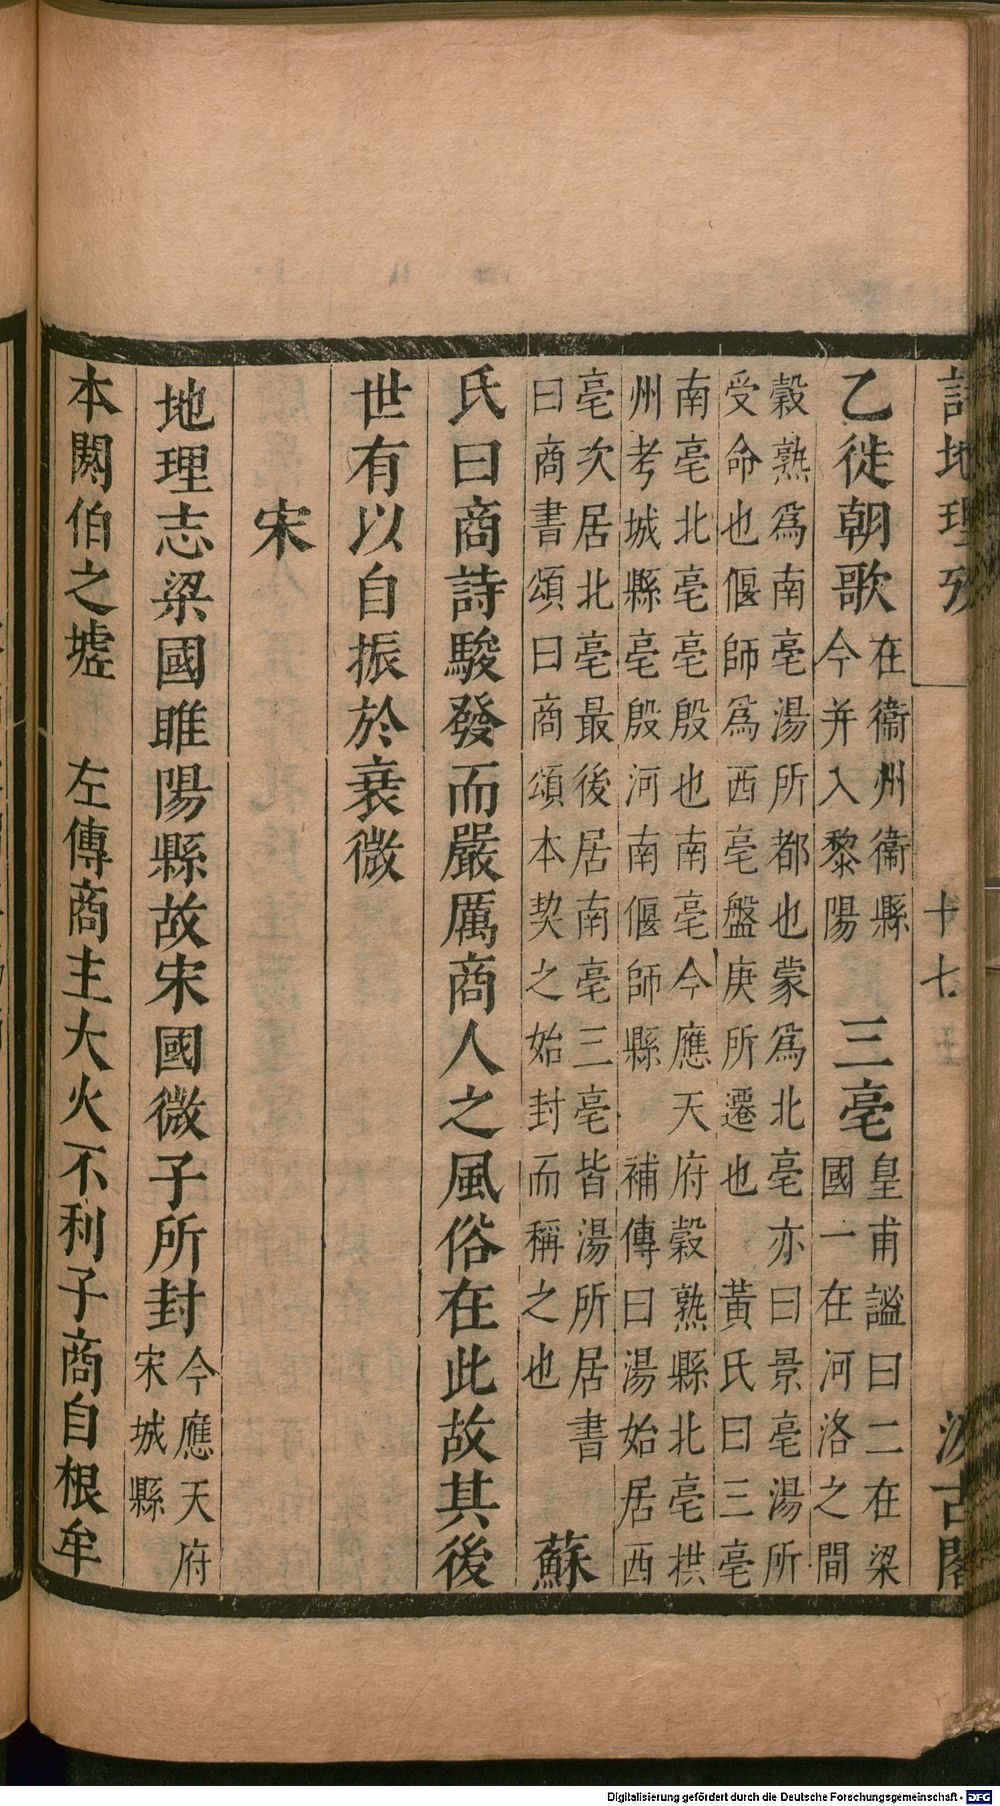 詩地理攷 十七 汲古閣
乙徙朝歌
在衞州衞縣
今并入黎陽
三亳
皇甫謐曰二在梁
國一在河洛之間
穀熟爲南亳湯所都也蒙爲北亳亦曰景亳湯所
受命也偃師爲西亳盤庚所遷也 黃氏曰三亳
南亳北亳亳殷也南亳今應天府穀熟縣北亳拱
州考城縣亳殷河南偃師縣 補傳曰湯始居西
亳次居北亳最後居南亳三亳皆湯所居書
曰商書頌曰商頌本契之始封而稱之也
蘇
氏曰商詩駿發而嚴厲商人之風俗在此故其後
世有以自振於衰微
宋
地理志梁國睢陽縣故宋國微子所封
今應天府
宋城縣
本閼伯之墟 左傳商主大火不利子商自根牟
Digitalisierung gefördert durch die Deutsche Forschungsgemeinschaft - DFG